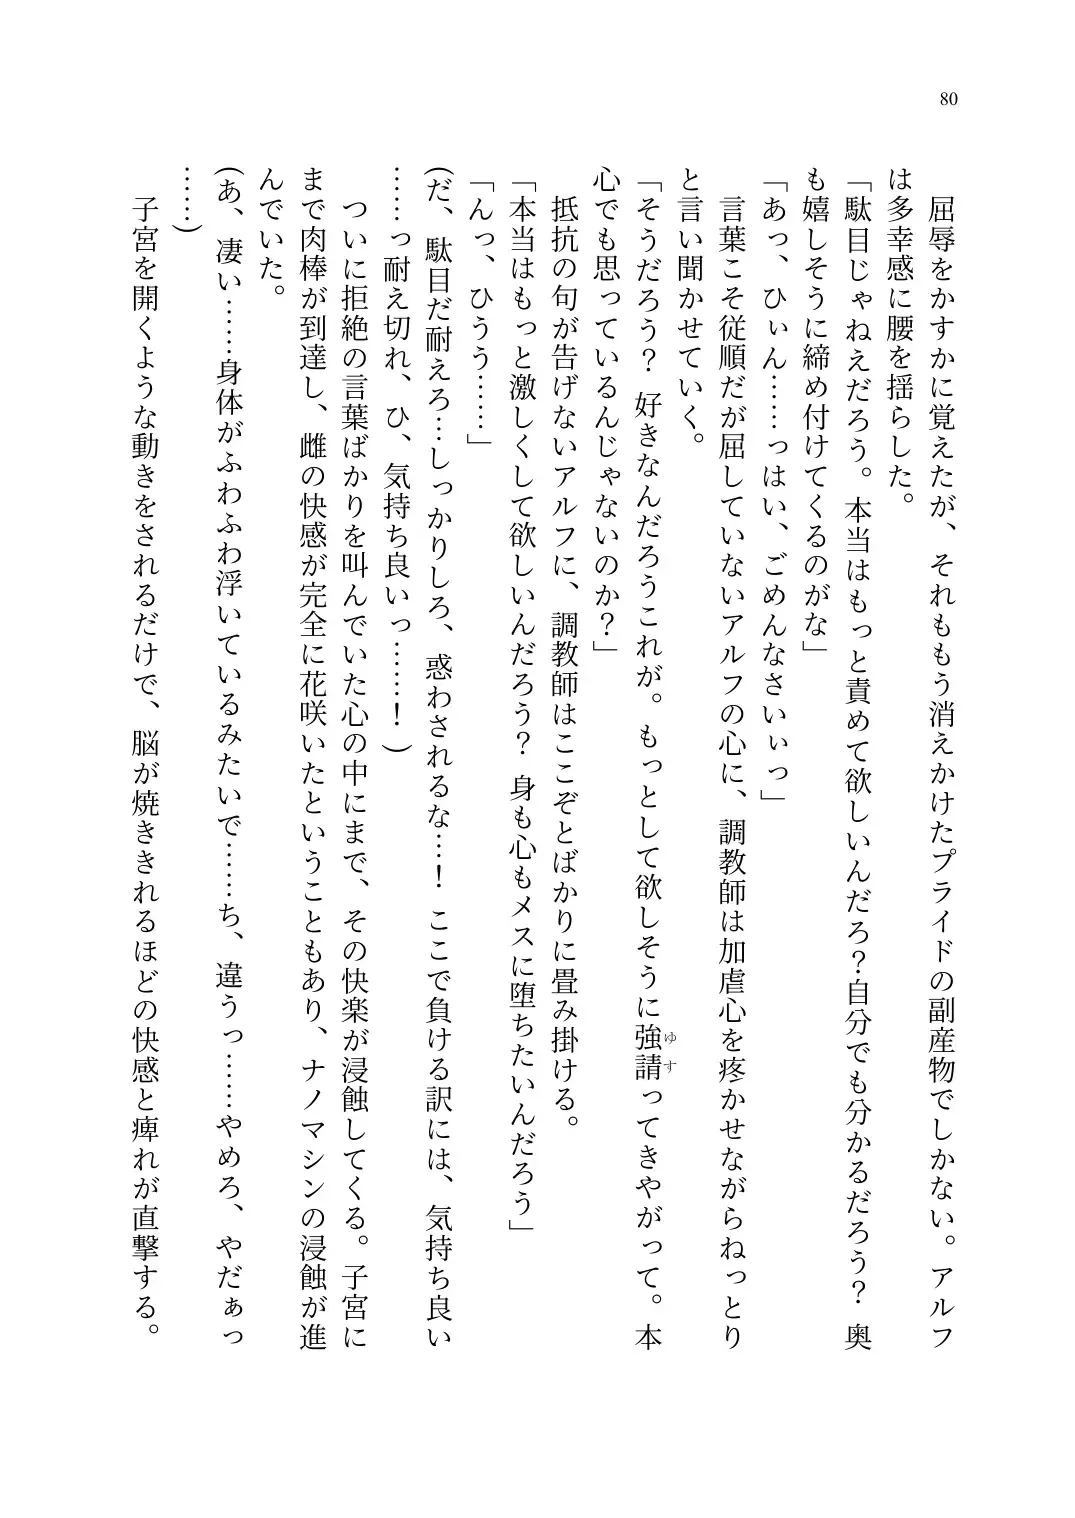 80
屈辱をかすかに覚えたが、それももう消えかけたプライドの副産物でしかない。アルフ
は多幸感に腰を揺らした。
「駄目じゃねえだろう。本当はもっと責めて欲しいんだろ？自分でも分かるだろう？　奥
も嬉しそうに締め付けてくるのがな」
「あっ、ひぃん……っはい、ごめんなさいぃっ」
言葉こそ従順だが屈していないアルフの心に、調教師は加虐心を疼かせながらねっとり
と言い聞かせていく。
「そうだろう？　好きなんだろうこれが。もっとして欲しそうに強請ってきやがって。本
ゆす
心でも思っているんじゃないのか？」
抵抗の句が告げないアルフに、調教師はここぞとばかりに畳み掛ける。
「本当はもっと激しくして欲しいんだろう？　身も心もメスに堕ちたいんだろう」
「んっ、ひうう……」
(だ、駄目だ耐えろ…しっかりしろ、惑わされるな…！　ここで負ける訳には、気持ち良い
……っ耐え切れ、ひ、気持ち良いっ……！)
ついに拒絶の言葉ばかりを叫んでいた心の中にまで、その快楽が浸蝕してくる。子宮に
まで肉棒が到達し、雌の快感が完全に花咲いたということもあり、ナノマシンの浸蝕が進
んでいた。
(あ、凄い……身体がふわふわ浮いているみたいで……ち、違うっ……やめろ、やだぁっ
……)
子宮を開くような動きをされるだけで、脳が焼ききれるほどの快感と痺れが直撃する。